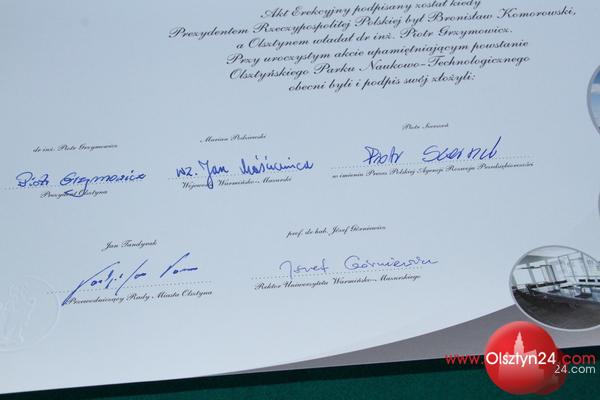 Akt Erekcyjny podpisany został kiedy
Prezydentem Rzeczypospolitej Polskiej był Bronisław Komorowski,
a Olsztynem władał dr inż. Piotr Grzymowicz.
Przy uroczystym akcie upamiętniającym powstanie
Olsztyńskiego Parku Naukowo-Technologicznego
obecni byli i podpis swój złożyli:
dr inż. Piotr Grzymowicz
Marian Podziewski
Piotr
Piotr Grzymowicz
wz. Jan Maścianica
Piotr
Prezydent Olsztyna
Wojewoda Warmińsko-Mazurski
w imieniu Prezes Polskiej Agencji Rozwoju Przedsiębiorczości
Jan Tandyrak
prof. dr hab. Józef Górniewicz
Józef Górniewicz
Przewodniczący Rady Miasta Olsztyna
Rektor Uniwersytetu Warmińsko-Mazurskiego
www.Olsztyn24.com
24.com